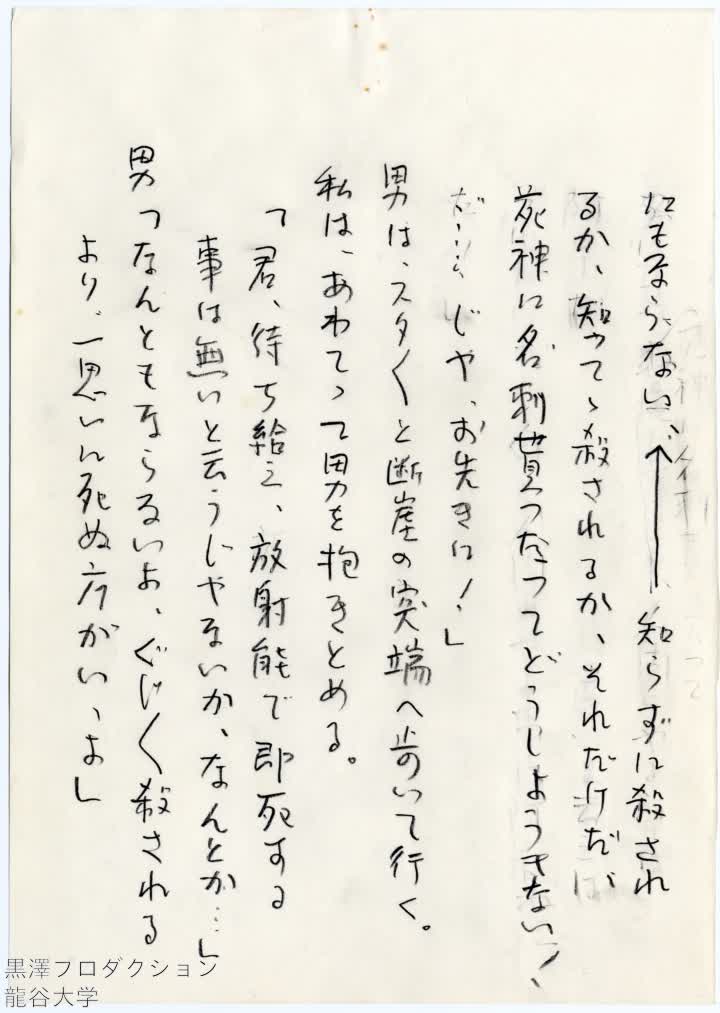 にもならない、← 知らずに殺され
るか、知つてゝ殺されるか、それだけだ、
死神に名刺貰つたつてどうしようもない!、
だ…、じや、お先きに!」
男は、スタ〱と断崖の突端へ歩いて行く。
私は、あわてって男を抱きとめる。
「君、待ち給え、放射能で即死する
事は無いと云うじやないか、なんとか…」
男「なんともならないよ、ぐじ〱殺される
より、一思いに死ぬ方がいゝよ」
黒澤プロダクション
龍谷大学